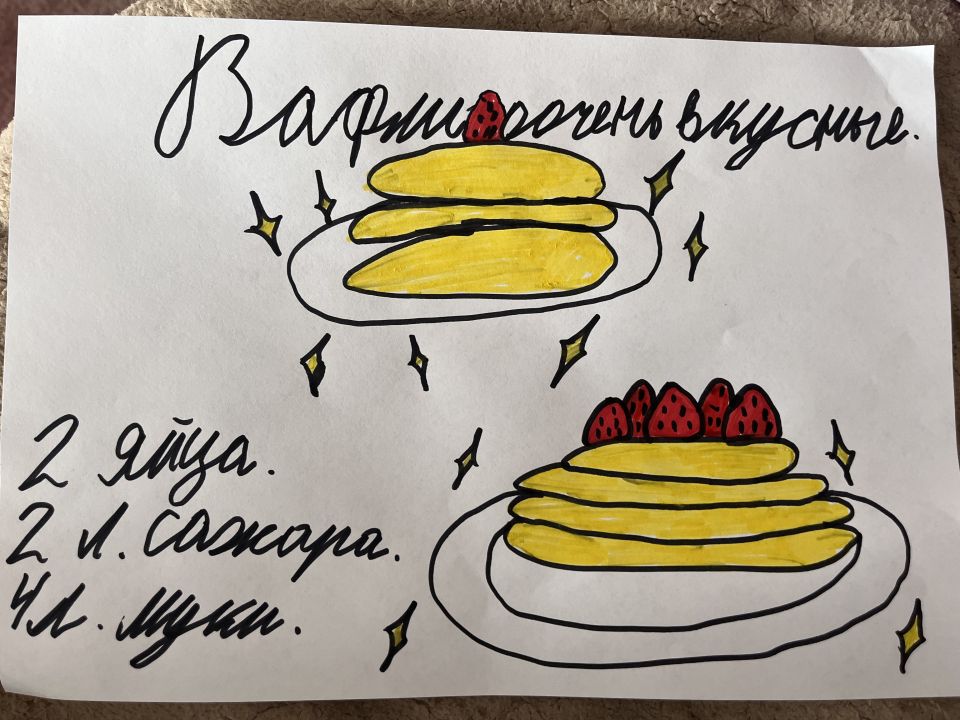 Вафли оочень вкусные.
2 яйца.
2 л. сажара.
4 л. муки.